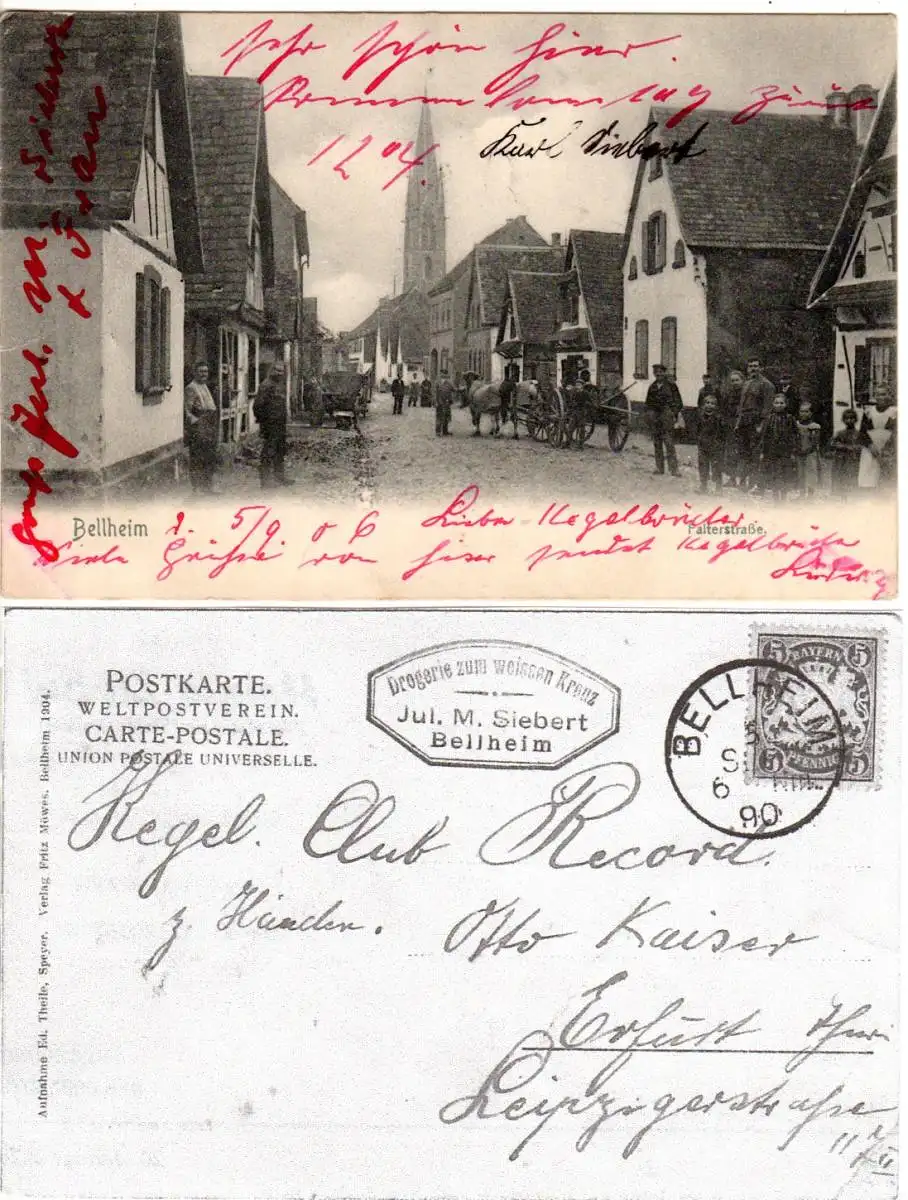 Sehr schön hier
Komme Samstag zurück
1204.
Karl Siebert
Siebert
& Frau
Bellheim d. 5/9 06 Liebe Kegelbrüder
Falterstraße.
Viele Grüße von hier sendet Kegelbruder
Ludwig
POSTKARTE.
WELTPOSTVEREIN.
CARTE-POSTALE.
UNION POSTALE UNIVERSELLE.
Drogerie zum weissen Kreuz
Jul. M. Siebert
Bellheim
BAYERN
5 5
PFENNIG
5 5
BELLHEIM
5
S
6 NM.
90
Aufnahme Ed. Theile, Speyer. Verlag Fritz Möwes, Bellheim 1904.
Kegel. Club Record.
z. Händen. Otto Kaiser
Erfurt Thür
Leipzigerstraße